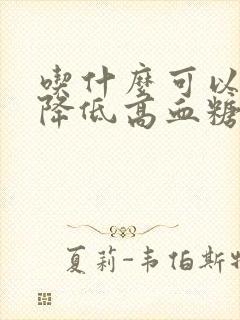 喫什麼可以
降低高血糖
夏莉-韦伯斯特